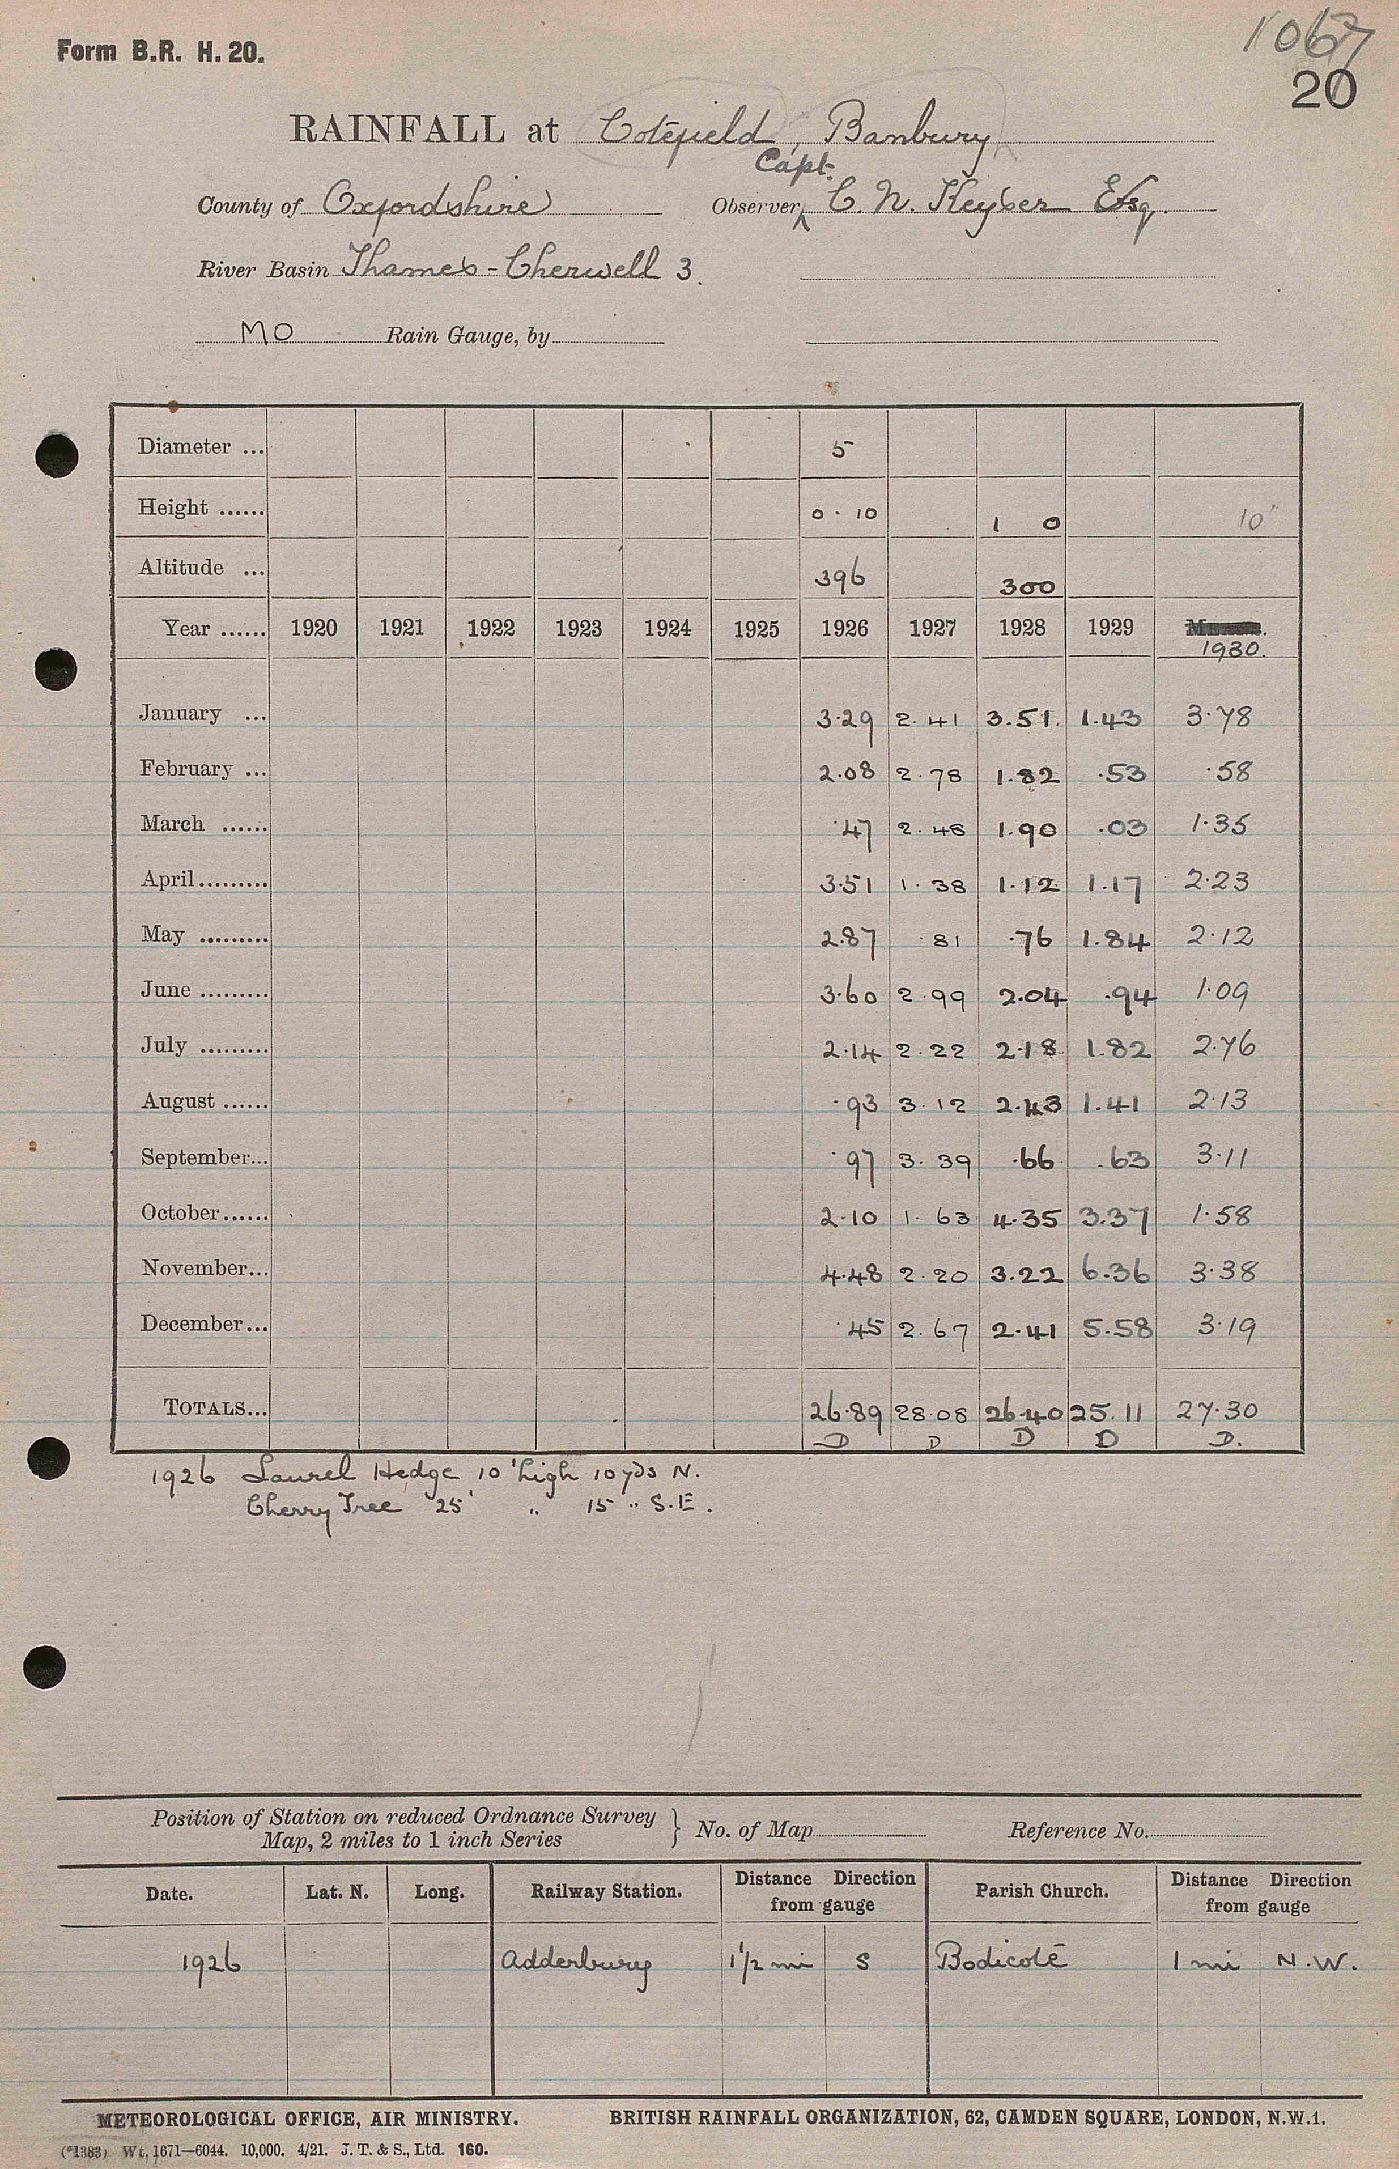 1067
Form B.R. H. 20.
20
RAINFALL at Cotefield, Banbury
Capt.
County of Oxfordshire Observer C. N. Keyser Esq.
River Basin Thames - Cherwell 3.
MO Rain Gauge, by
Diameter ... 5
Height ...... 0 · 10 1 0 10"
Altitude ... 396 300
Year ...... 1920 1921 1922 1923 1924 1925 1926 1927 1928 1929
1930.
January ... 3·29 2.41 3.51. 1.43 3·78
February ... 2.08 2.78 1.82 .53 ·58
March ...... ·47 2.48 1.90 .03 1·35
April......... 3·51 1.38 1.12 1.17 2·23
May ......... 2.87 ·81 ·76 1.84 2·12
June ......... 3·60 2.99 2.04 .94 1·09
July ......... 2.14 2.22 2·18 1.82 2·76
August ...... ·93 3.12 2.43 1.41 2·13
September... ·97 3.39 ·66 .63 3·11
October...... 2·10 1.63 4·35 3.37 1·58
November... 4·48 2.20 3.22 6.36 3·38
December... ·45 2.67 2.41 5.58 3·19
TOTALS... 26·89 28·08 26·40 25.11 27·30
D D D D D.
1926 Laurel Hedge 10' high 10 yds N.
Cherry Tree 25' " 15 " S.E.
Position of Station on reduced Ordnance Survey
Map, 2 miles to 1 inch Series } No. of Map Reference No.
Date. Lat. N. Long. Railway Station. Distance Direction from gauge Parish Church. Distance Direction from gauge
1926 Adderbury 1 1/2 mi S Bodicote 1 mi N.W.
METEOROLOGICAL OFFICE, AIR MINISTRY. BRITISH RAINFALL ORGANIZATION, 62, CAMDEN SQUARE, LONDON, N.W.1.
(*1383) Wt. 1671—6044. 10,000. 4/21. J. T. & S., Ltd. 160.